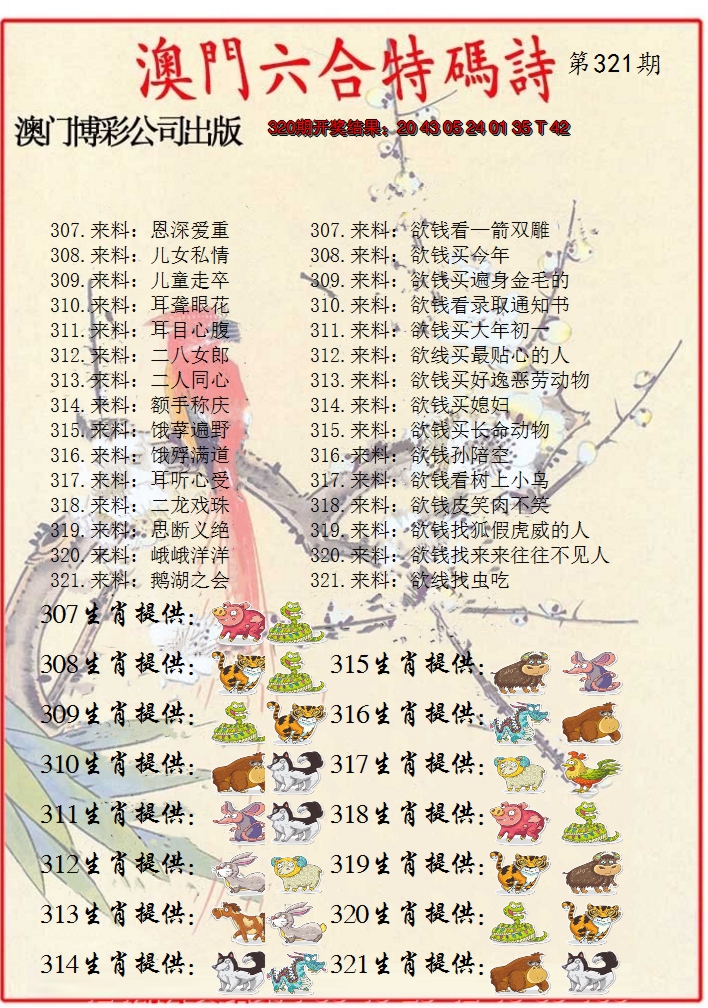 澳門六合特碼詩 第321期
澳门博彩公司出版 320期开奖结果：20 43 05 24 01 35 T 42
307.来料：恩深爱重 307.来料：欲钱看一箭双雕
308.来料：儿女私情 308.来料：欲钱买今年
309.来料：儿童走卒 309.来料：欲钱买遍身金毛的
310.来料：耳聋眼花 310.来料：欲钱看录取通知书
311.来料：耳目心腹 311.来料：欲钱买大年初一
312.来料：二八女郎 312.来料：欲线买最贴心的人
313.来料：二人同心 313.来料：欲钱买好逸恶劳动物
314.来料：额手称庆 314.来料：欲钱买媳妇
315.来料：饿莩遍野 315.来料：欲钱买长命动物
316.来料：饿殍满道 316.来料：欲钱孙陪空
317.来料：耳听心受 317.来料：欲钱看树上小鸟
318.来料：二龙戏珠 318.来料：欲钱皮笑肉不笑
319.来料：思断义绝 319.来料：欲钱找狐假虎威的人
320.来料：峨峨洋洋 320.来料：欲钱找来来往往不见人
321.来料：鹅湖之会 321.来料：欲线找虫吃
307生肖提供：
308生肖提供： 315生肖提供：
309生肖提供： 316生肖提供：
310生肖提供： 317生肖提供：
311生肖提供： 318生肖提供：
312生肖提供： 319生肖提供：
313生肖提供： 320生肖提供：
314生肖提供： 321生肖提供：